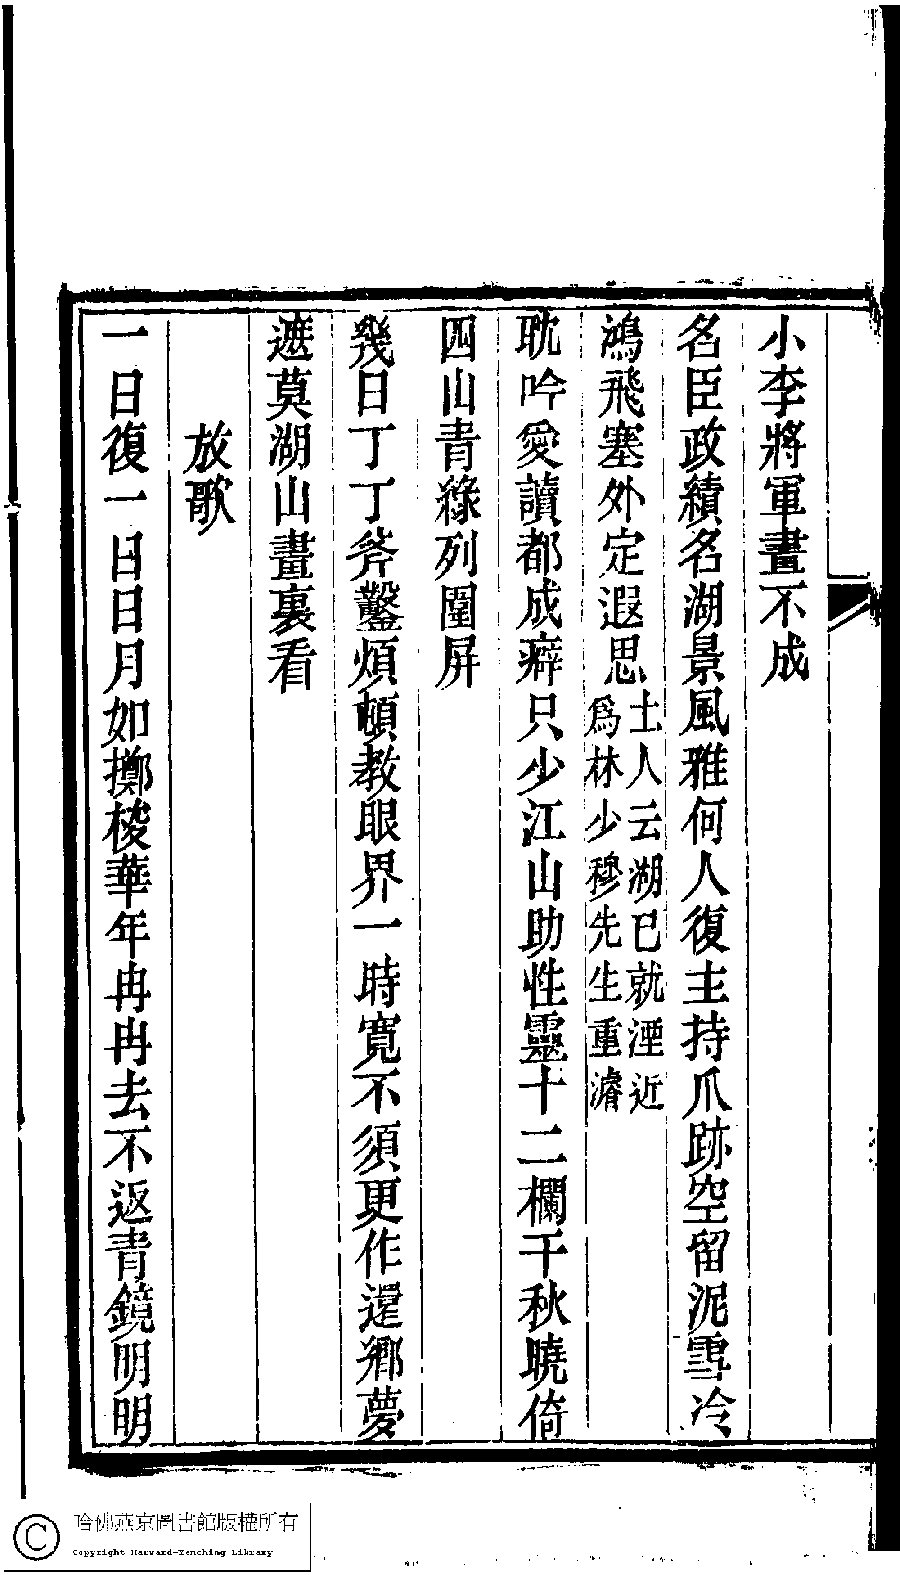 小李將軍畫不成
名臣政績名湖景風雅何人復主持爪跡空留泥雪冷
鴻飛塞外定遐思土人云湖已就湮近爲林少穆先生重濬
耽吟愛讀都成癖只少江山助性靈十二欄干秋曉倚
四山青綠列圍屏
幾日丁丁斧鑿煩頓教眼界一時寬不須更作還鄉夢
遮莫湖山畫裏看
放歌
一日復一日日月如擲梭華年冉冉去不返青鏡明明
哈佛燕京圖書館版權所有
Copyright Harvard-Yenching Library